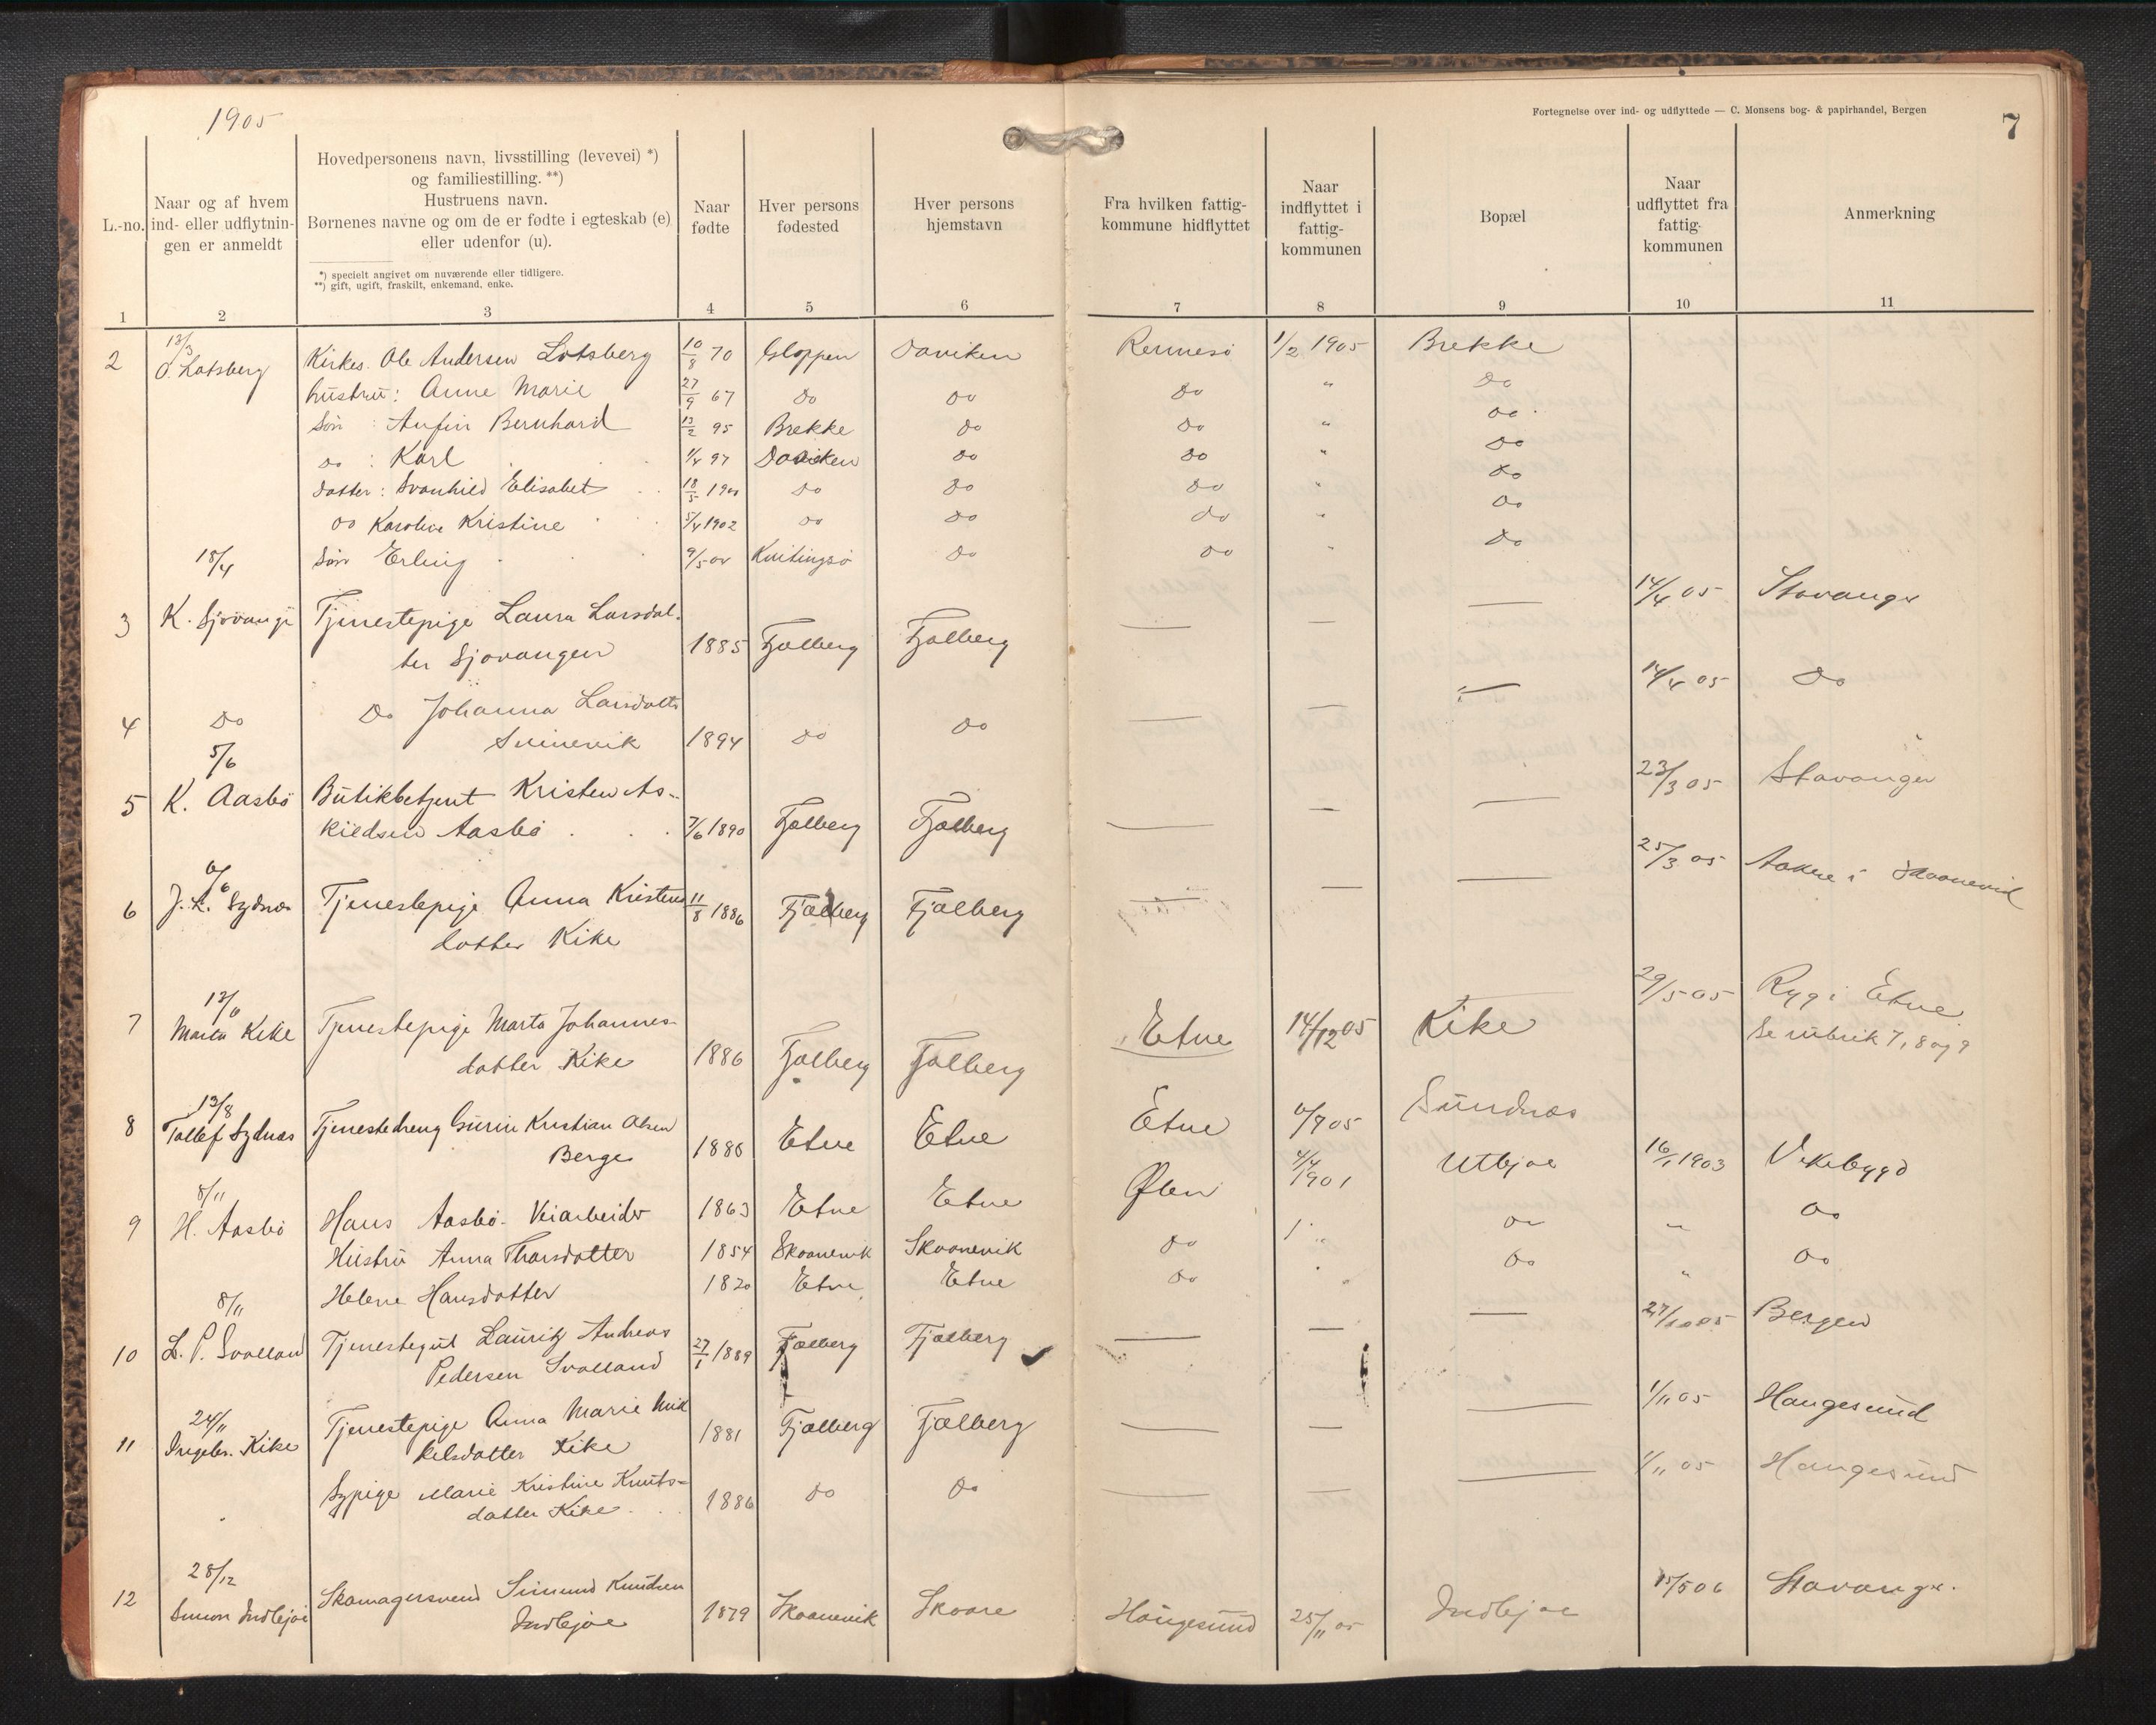 1905
Fortegnelse over ind- og udflyttede — C. Monsens bog- & papirhandel, Bergen
7
L.-no.
Naar og af hvem ind- eller udflytningen er anmeldt
Hovedpersonens navn, livsstilling (levevei) *)
og familiestilling. **)
Hustruens navn.
Børnenes navne og om de er fødte i egteskab (e)
eller udenfor (u).
*) specielt angivet om nuværende eller tidligere.
**) gift, ugift, fraskilt, enkemand, enke.
Naar fødte
Hver persons fødested
Hver persons hjemstavn
Fra hvilken fattigkommune hidflyttet
Naar indflyttet i fattigkommunen
Bopæl
Naar udflyttet fra fattigkommunen
Anmerkning
1 2 3 4 5 6 7 8 9 10 11
2 13/3 O. Lotsberg Kirkes. Ole Andersen Lotsberg 10/8 70 Gloppen Daviken Rennesö 1/2 1905 Brekke
hustru: Anne Marie 27/9 67 Do Do Do " Do
Søn : Anfin Bernhard 13/2 95 Brekke Do Do " Do
Do : Karl 1/4 97 Daviken Do Do " Do
Datter : Svanhild Elisabet 18/5 1900 Do Do Do " Do
Do Karoline Kristine 5/4 1902 Do Do Do " Do
18/4 Søn Erling 9/5 04 Kvitingsö Do Do " Do
3 K. Sjovangen Tjenestepige Laura Larsdat- — — — 14/4 05 Stavanger
ter Sjovangen 1885 Fjelberg Fjelberg
4 Do Do Johanna Larsdatter — — — 14/4 05 Do
Svinevik 1894 Do Do
5/6
5 K. Aasbö Butikbetjent Kristen As- — — — 23/3 05 Stavanger
kildsen Aasbö 7/6 1890 Fjelberg Fjelberg
6/6
6 J. K. Sydnæs Tjenestepige Anna Kristens 11/8 1886 Fjelberg Fjelberg — — — 25/3 05 Aakre i Skaanevik
datter Kike
13/6
7 Marta Kike Tjenestepige Marta Johannes- Etne 14/12 05 Kike 29/5 05 Ryg i Etne
datter Kike 1886 Fjelberg Fjelberg Se rubrik 7, 8 og 9
13/8
8 Tollef Sydnæs Tjenestedreng Gurin Kristian Olsen Etne 6/7 05 Sundnæs
Berge 1886 Etne Etne
8/11
9 H. Aasbö Hans Aasbö. Veiarbeider 1863 Etne Etne Ølen 4/4 1901 Utbjoe 16/1 1903 Vikebygd
Hustru Anna Tharsdatter 1854 Skaanevik Skaanevik Do " Do " Do
Helene Hansdatter 1820 Etne Etne Do " Do " Do
8/11
10 L. P. Svolland Tjenestegut Lauritz Andreas 27/1 1889 Fjelberg Fjelberg — — — 27/10 05 Bergen
Pedersen Svolland
24/11
11 Ingebr. Kike Tjenestepige Anna Marie Mik 1881 Fjelberg Fjelberg — — — 1/11 05 Haugesund
kelsdatter Kike
Sypige Marie Kristine Knuts- 1886 Do Do — — — 1/11 05 Haugesund
datter Kike
28/12
12 Simon Indbjoe Skomagersvend Simund Knudsen 1879 Skaanevik Skaare Haugesund 25/11 05 Indbjoe 15/5 06 Stavanger.
Indbjoe